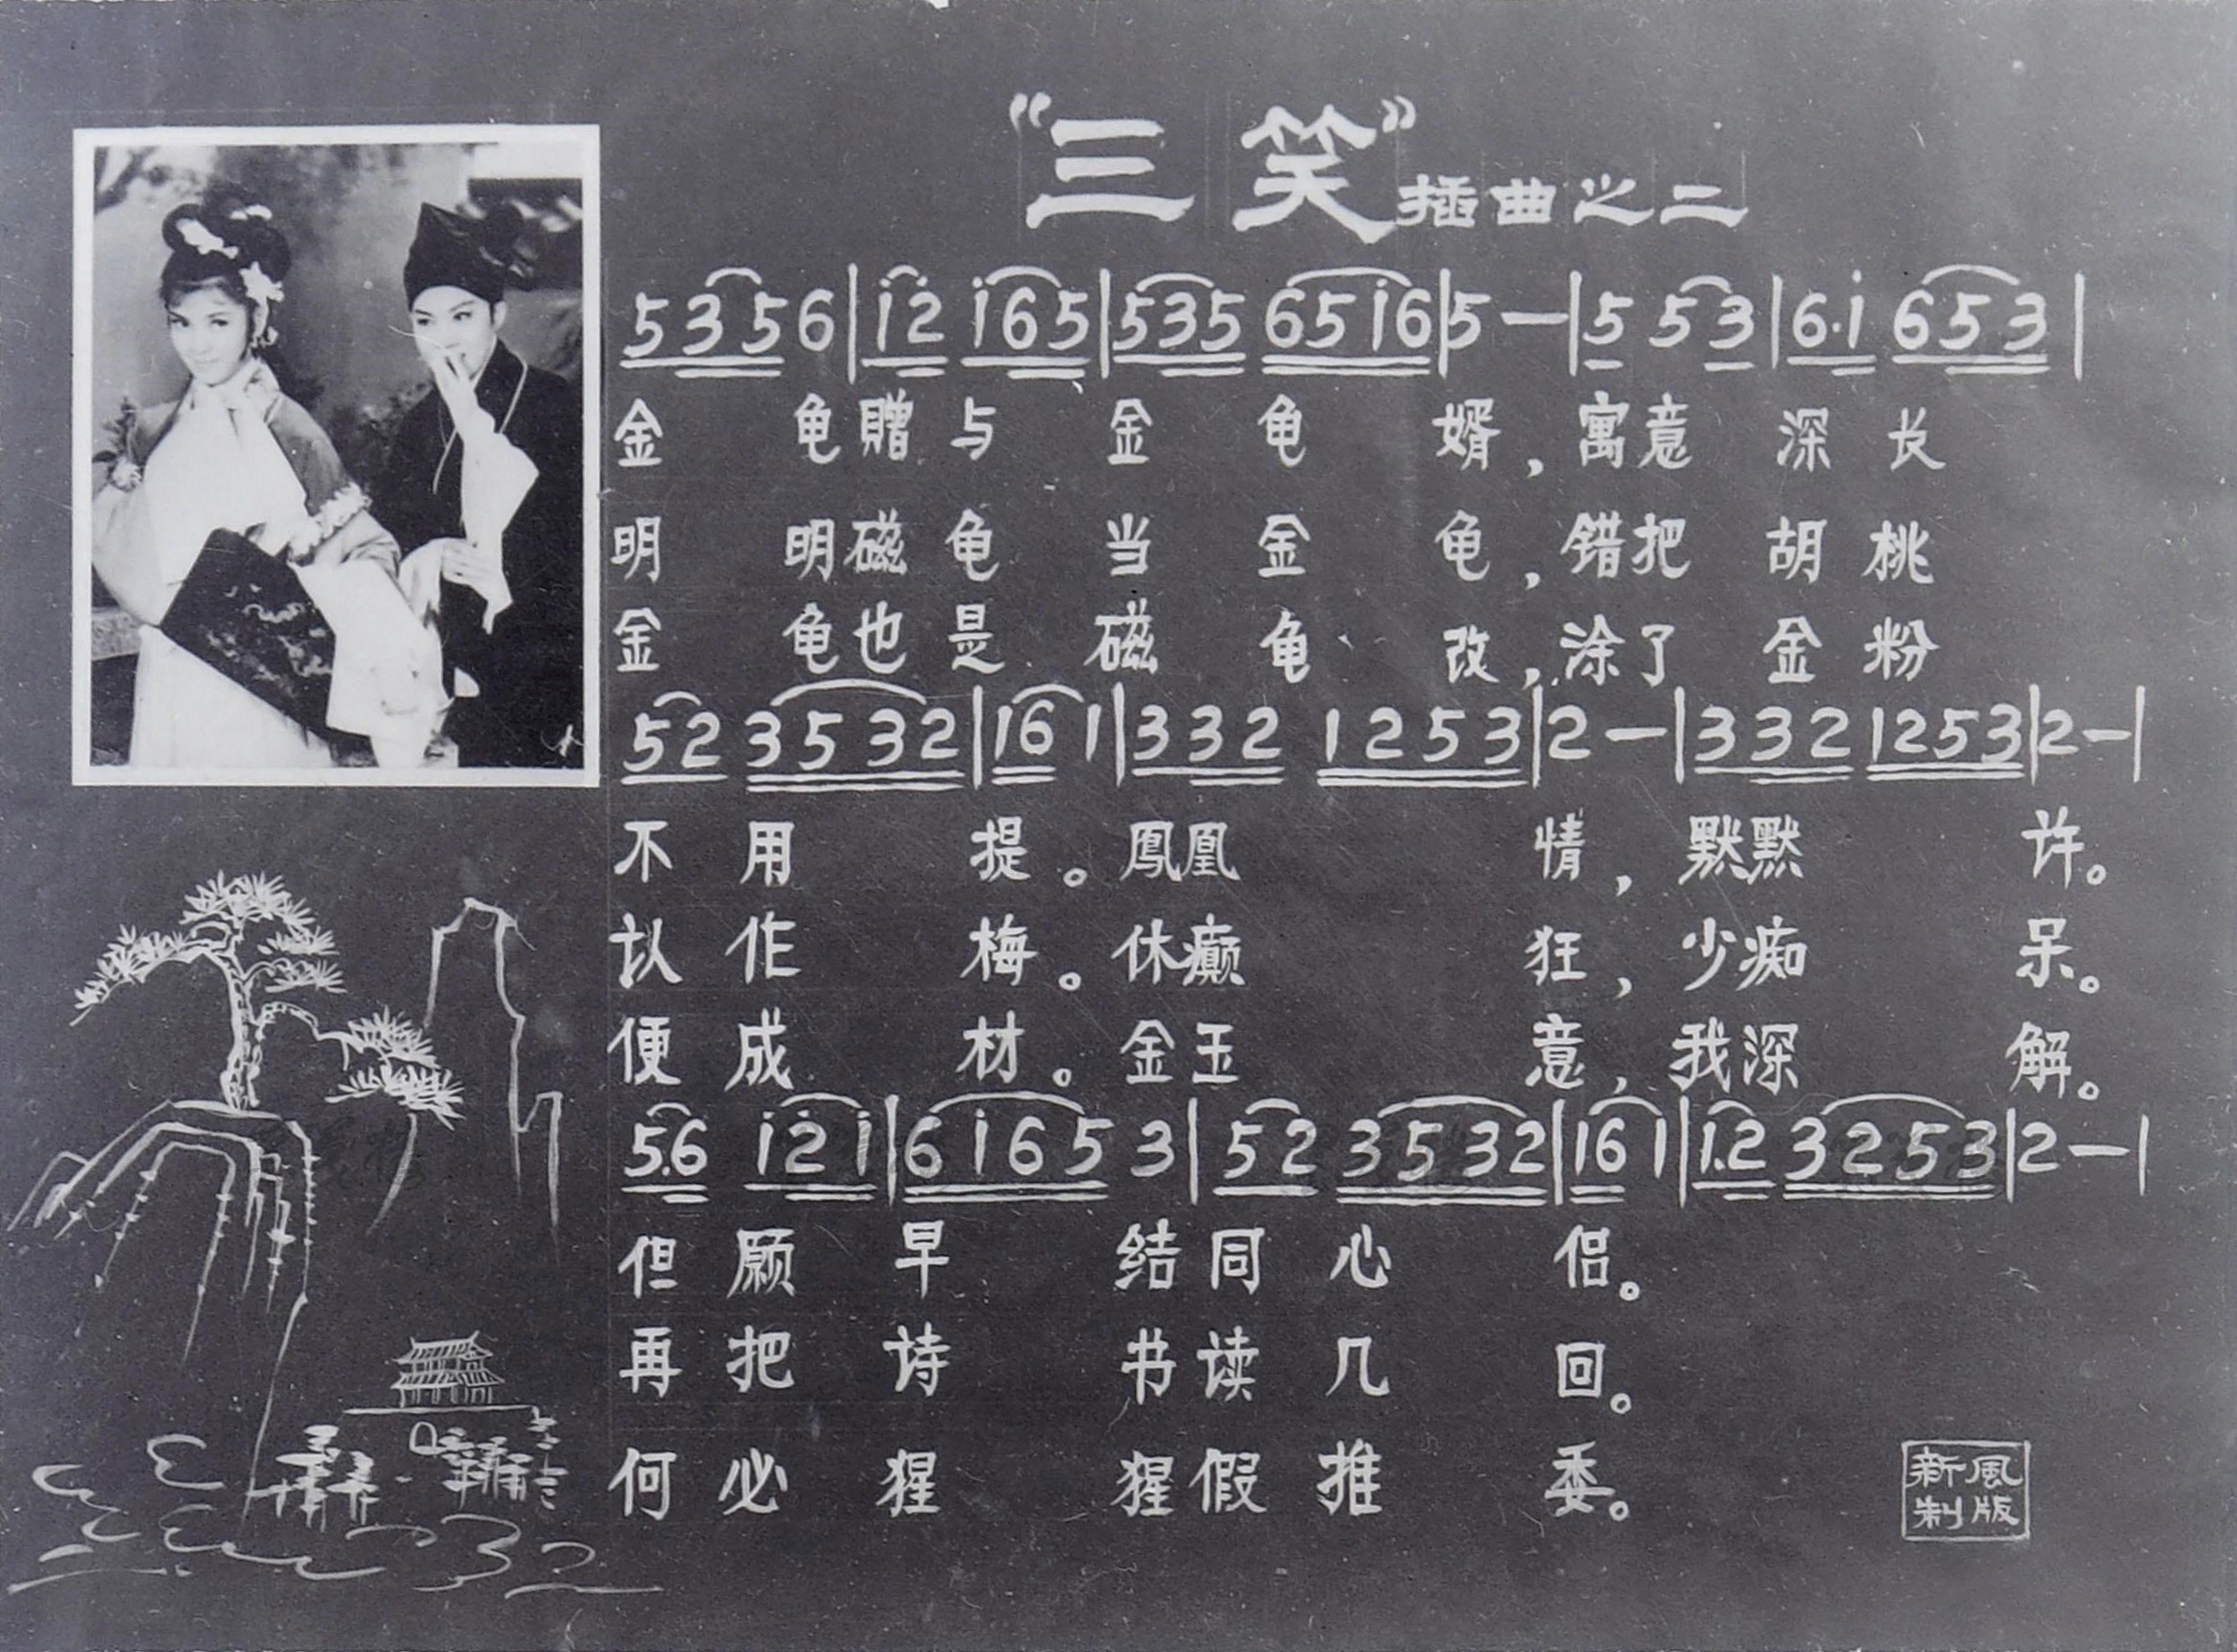 “三笑”插曲之二
5 3 5 6 | i 2̇ i 6 5 | 5 3 5 6 5 i 6 | 5 — | 5 5 3 | 6·i 6 5 3 |
金龟赠与金龟婿，寓意深长
明明磁龟当金龟，错把胡桃
金龟也是磁龟改，涂了金粉
5 2 3 5 3 2 | 1 6 1 | 3 3 2 1 2 5 3 | 2 — | 3 3 2 1 2 5 3 | 2 — |
不用提。鳳凰情，默默许。
认作梅。休癫狂，少痴呆。
便成材。金玉意，我深解。
5.6 i 2̇ i | 6 i 6 5 3 | 5 2 3 5 3 2 | 1 6 1 | 1.2 3 2 5 3 | 2 — |
但愿早结同心侣。
再把诗书读几回。
何必猩猩假推委。
新風
制版